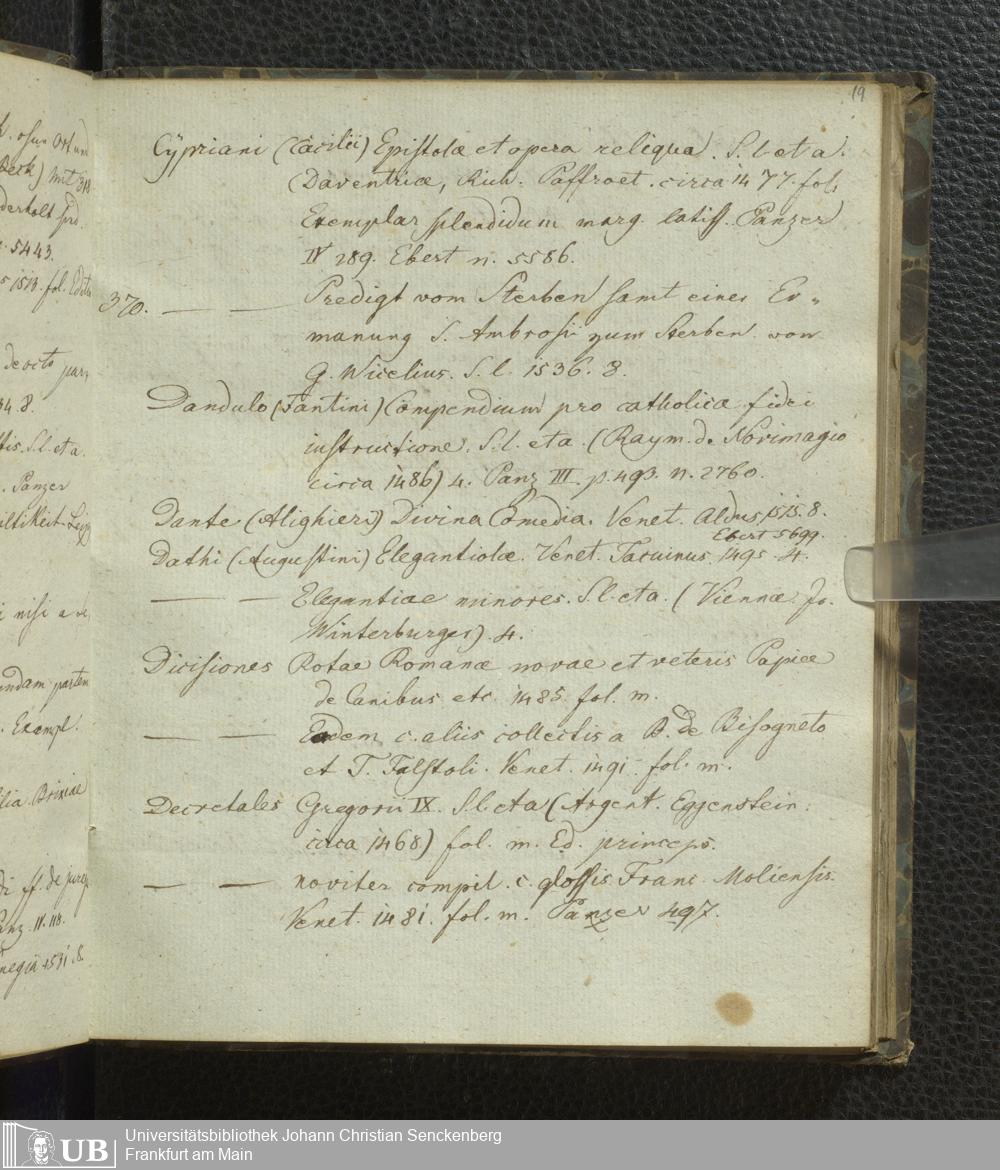 k. ohne Ort und
Beck) mit 318
derholt sird.
5443.
s 1513. fol. Edit
de octo par,
34. 8.
tis. S.l. et a.
. Panzer
ultikeit. Leipz
i nisi a se
undam partem
. Exempl.
ilia. Brixiae
di ff. de jureju
anz. II. 118.
negia 1531. 8.
19
Cÿpriani (Cäcilii) Epistolæ et opera reliqua. S.l. et a.
(Daventriæ, Rich. Paffroet. circa 1477. fol.
Exemplar splendidum marg. latiss. Panzer
IV 289. Ebert n. 5586.
370. — — Predigt vom Sterben samt einer Er=
manung S. Ambrosii zum Sterben von
G. Wicelius. S.l. 1536. 8.
Dandulo (Fantini) Compendium pro catholica fidei
instructione. S.l. et a. (Raym. de Novimagio
circa 1486) 4. Panz III. p. 493. n. 2760.
Dante (Alighieri) Divina Comedia. Venet. Aldus 1515. 8.
Ebert 5699.
Dathi (Augustini) Elegantiolæ. Venet. Tacuinus. 1495. 4.
— — Elegantiae minores. S.l. et a. (Viennæ. Jo.
Winterburger) 4.
Dicisiones Rotae Romanæ novae et veteris Papiæ
de Canibus etc. 1485. fol. m.
— — Eadem c. aliis collectis a B. de Bisogneto
et T. Falstoli. Venet. 1491. fol. m.
Decretales Gregorii IX. S.l. et a (Argent. Eggenstein.
circa 1468) fol. m. Ed. princeps.
— — noviter compil. c. glossis Franc Moliensis.
Venet. 1481. fol. m. Panzer 497.
UB
Universitätsbibliothek Johann Christian Senckenberg
Frankfurt am Main